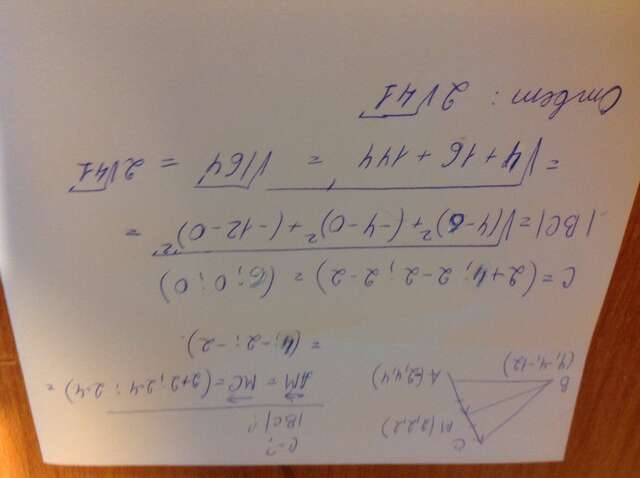 C
M(2,2,2)
B
(4,-4,-12)
A(-2,4,4)
C-?
|BC|?
AM = MC = (2+2; 2-4; 2-4) =
= (4; -2; -2).
C = (2+4; 2-2; 2-2) = (6; 0; 0)
|BC| = √(4-6)² + (-4-0)² + (-12-0)² =
= √4 + 16 + 144 = √164 = 2√41
Ответ: 2√41